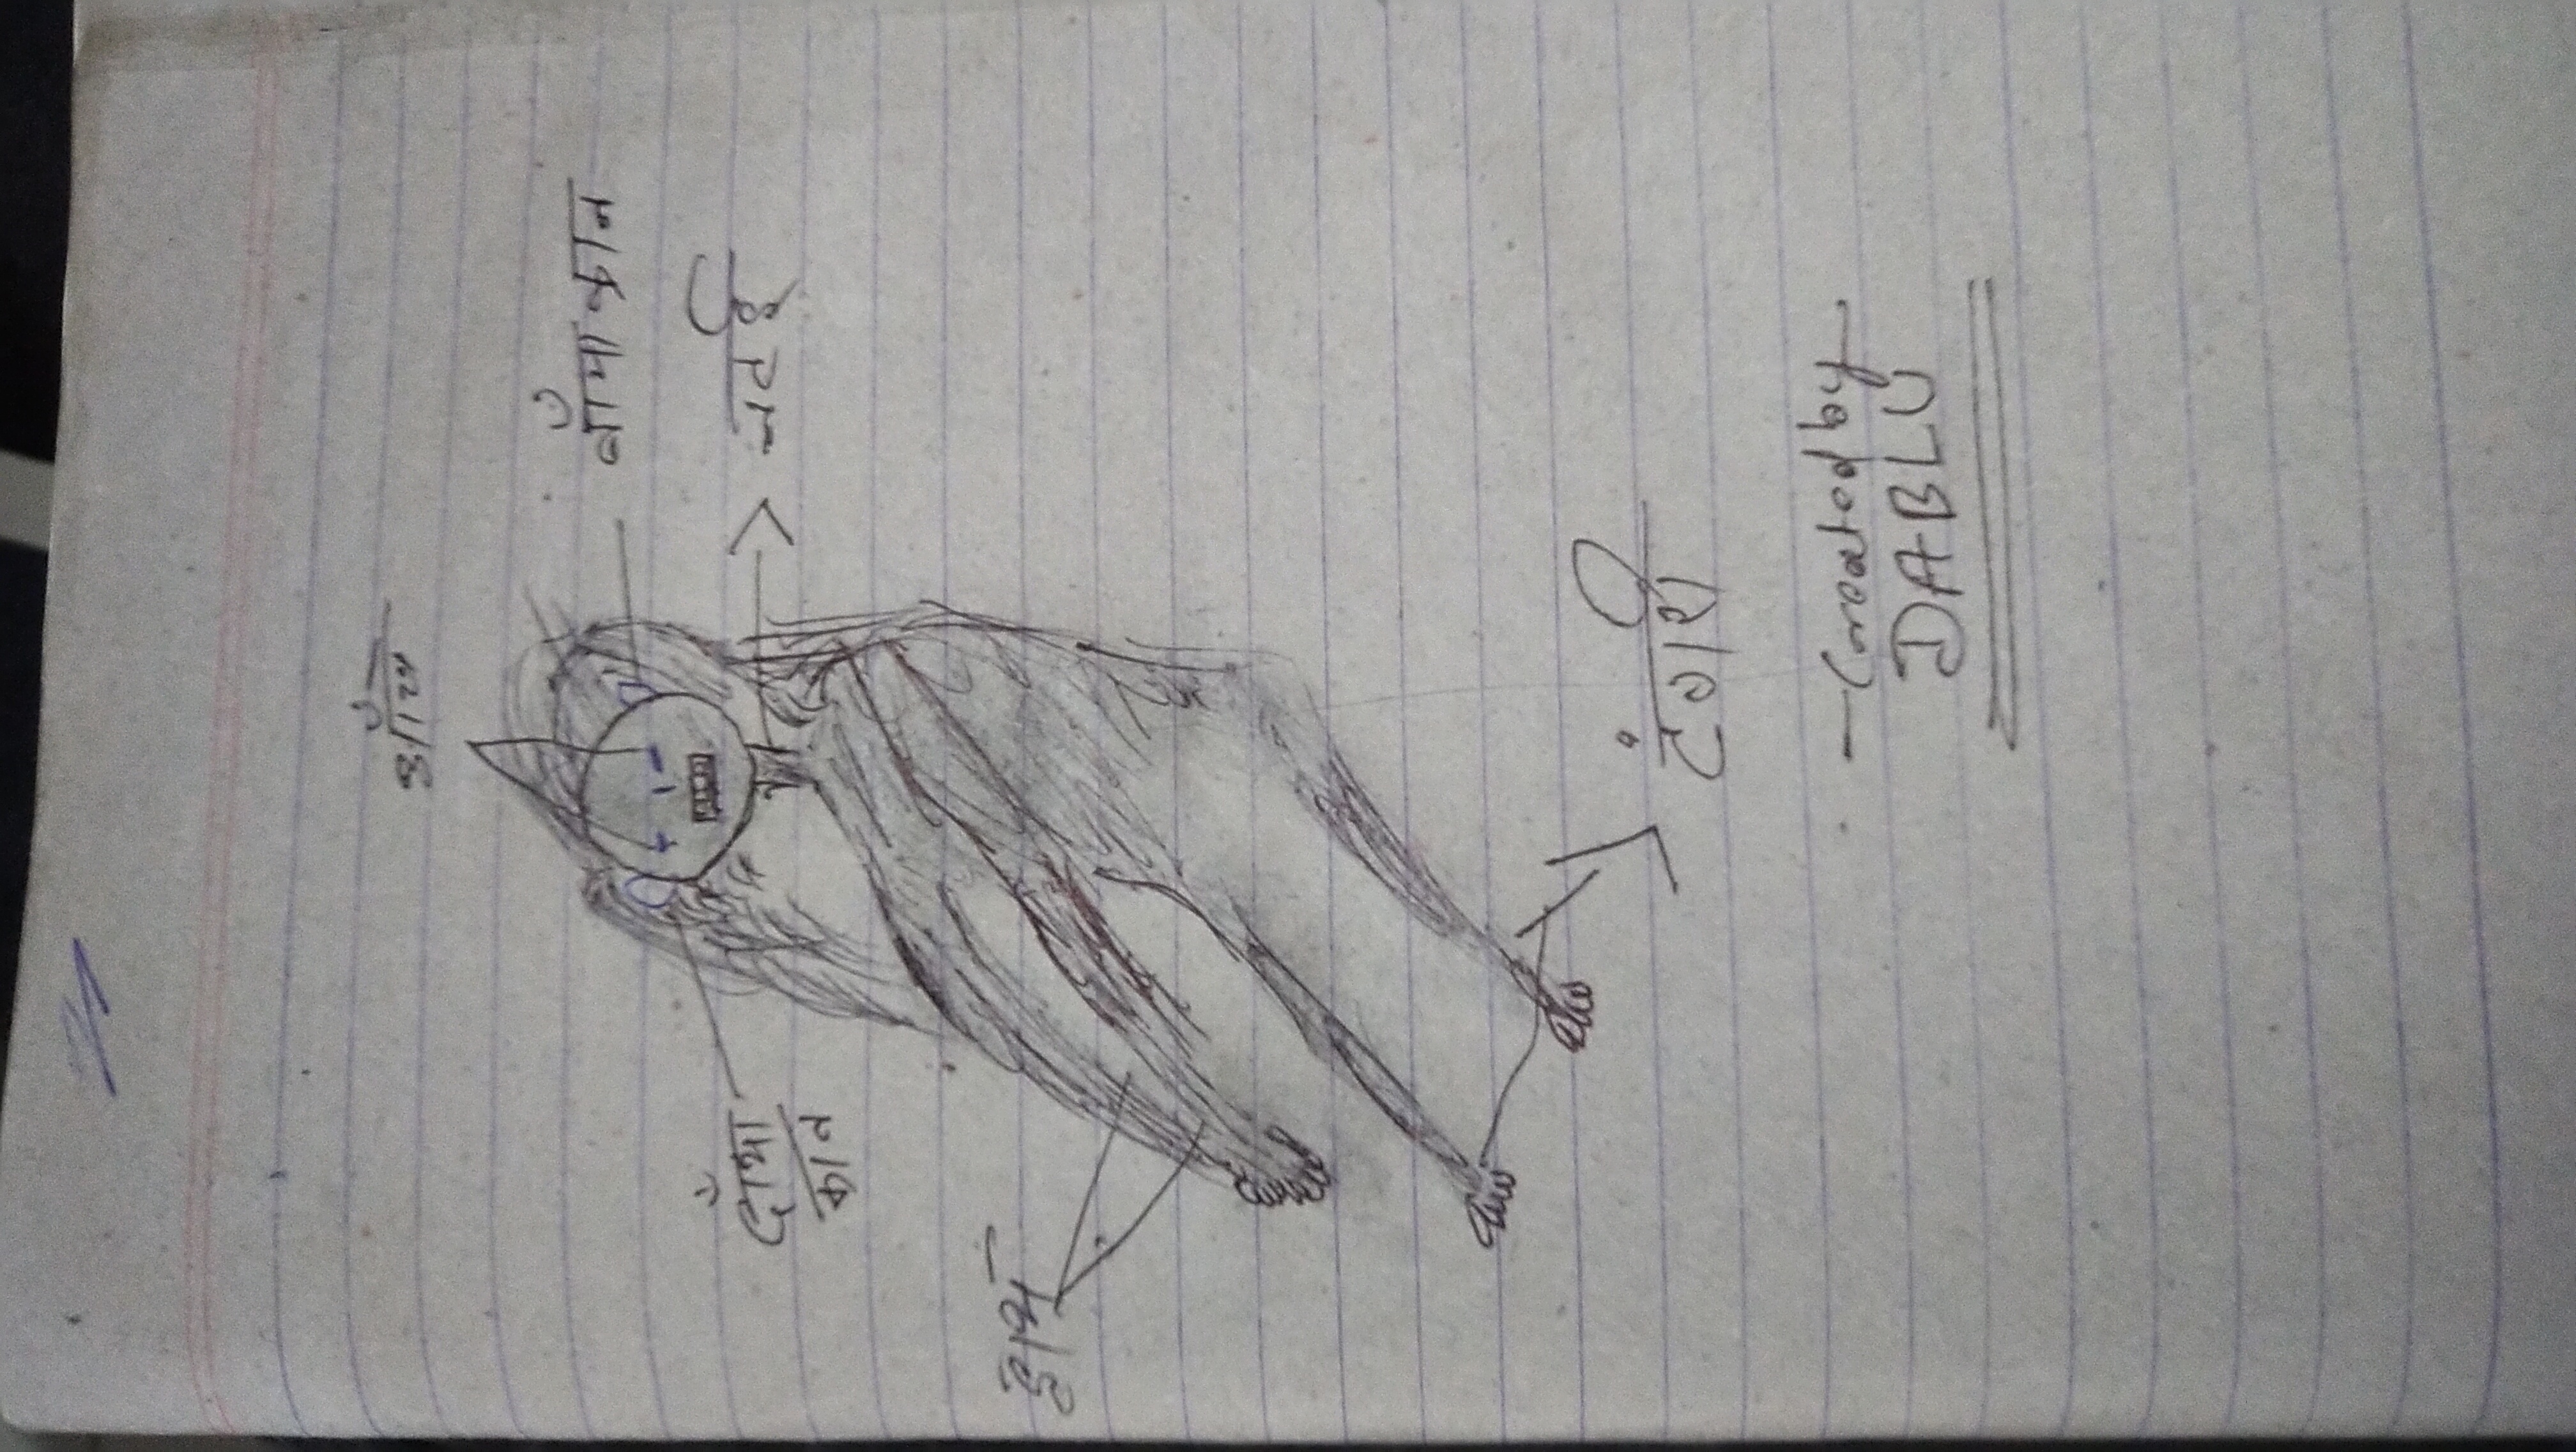 आँख
बाँया कान
दाँया
कान
नटई
हाथ
टंगरी
- Created by
DABLU